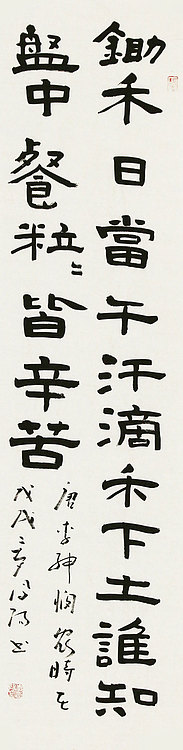 鋤禾日當午汗滴禾下土誰知
盤中餐粒〻皆辛苦
唐李紳憫農時
戊戌